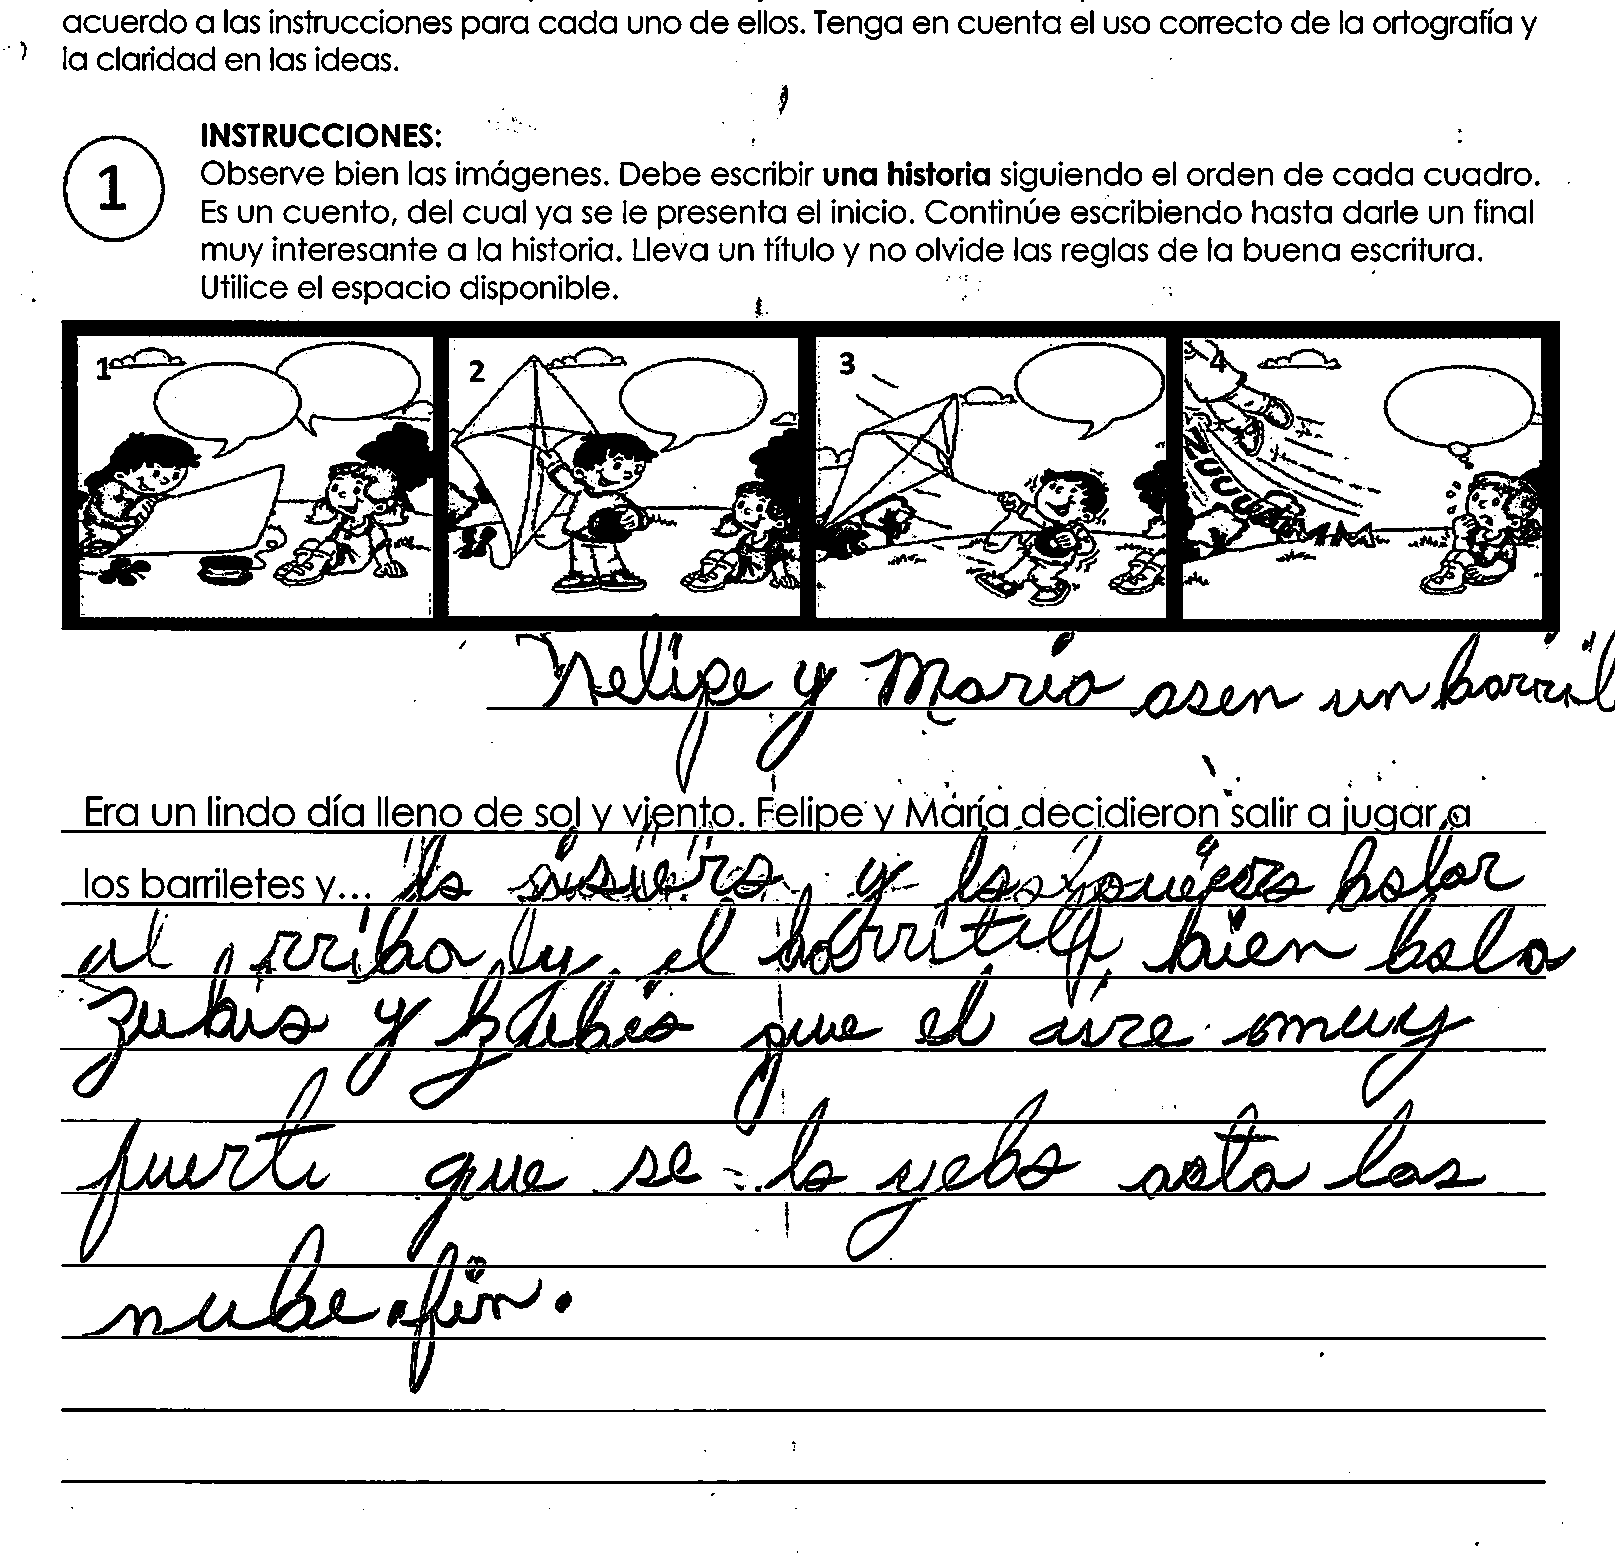 acuerdo a las instrucciones para cada uno de ellos. Tenga en cuenta el uso correcto de la ortografía y
la claridad en las ideas.
INSTRUCCIONES:
1
Observe bien las imágenes. Debe escribir una historia siguiendo el orden de cada cuadro.
Es un cuento, del cual ya se le presenta el inicio. Continúe escribiendo hasta darle un final
muy interesante a la historia. Lleva un título y no olvide las reglas de la buena escritura.
Utilice el espacio disponible.
1 2 3 4
ZUUUU
Felipe y Maria asen un barril
Era un lindo día lleno de sol y viento. Felipe y María decidieron salir a jugar a
los barriletes y... lo y bolar
al rriba y el bien bolo
zubio y que el aire muy
fuerte que se lo yebo asta las
nube. fin.